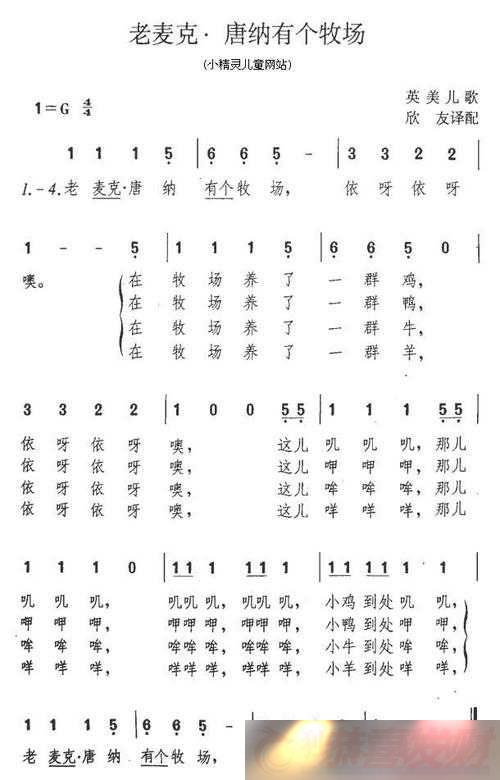 老麦克·唐纳有个牧场
(小精灵儿童网站)
英美儿歌
1=G 4/4
欣 友译配
1 1 1 5 | 6 6 5 - | 3 3 2 2 |
1.-4.老 麦克·唐 纳 有个牧 场, 依 呀 依 呀
1 - - 5 | 1 1 1 5 | 6 6 5 0 |
噢。 在 牧 场 养 了 一 群 鸡,
在 牧 场 养 了 一 群 鸭,
在 牧 场 养 了 一 群 牛,
在 牧 场 养 了 一 群 羊,
3 3 2 2 | 1 0 0 5 5 | 1 1 1 5 5 |
依 呀 依 呀 噢, 这儿 叽 叽 叽, 那儿
依 呀 依 呀 噢, 这儿 呷 呷 呷, 那儿
依 呀 依 呀 噢, 这儿 哞 哞 哞, 那儿
依 呀 依 呀 噢, 这儿 咩 咩 咩, 那儿
1 1 1 0 | 1 1 1 1 1 1 | 1 1 1 1 1 1 |
叽 叽 叽, 叽叽 叽, 叽叽 叽, 小鸡 到处 叽 叽,
呷 呷 呷, 呷呷 呷, 呷呷 呷, 小鸭 到处 呷 呷,
哞 哞 哞, 哞哞 哞, 哞哞 哞, 小牛 到处 哞 哞,
咩 咩 咩, 咩咩 咩, 咩咩 咩, 小羊 到处 咩 咩,
1 1 1 5 | 6 6 5 -
老 麦克·唐 纳 有个牧 场,